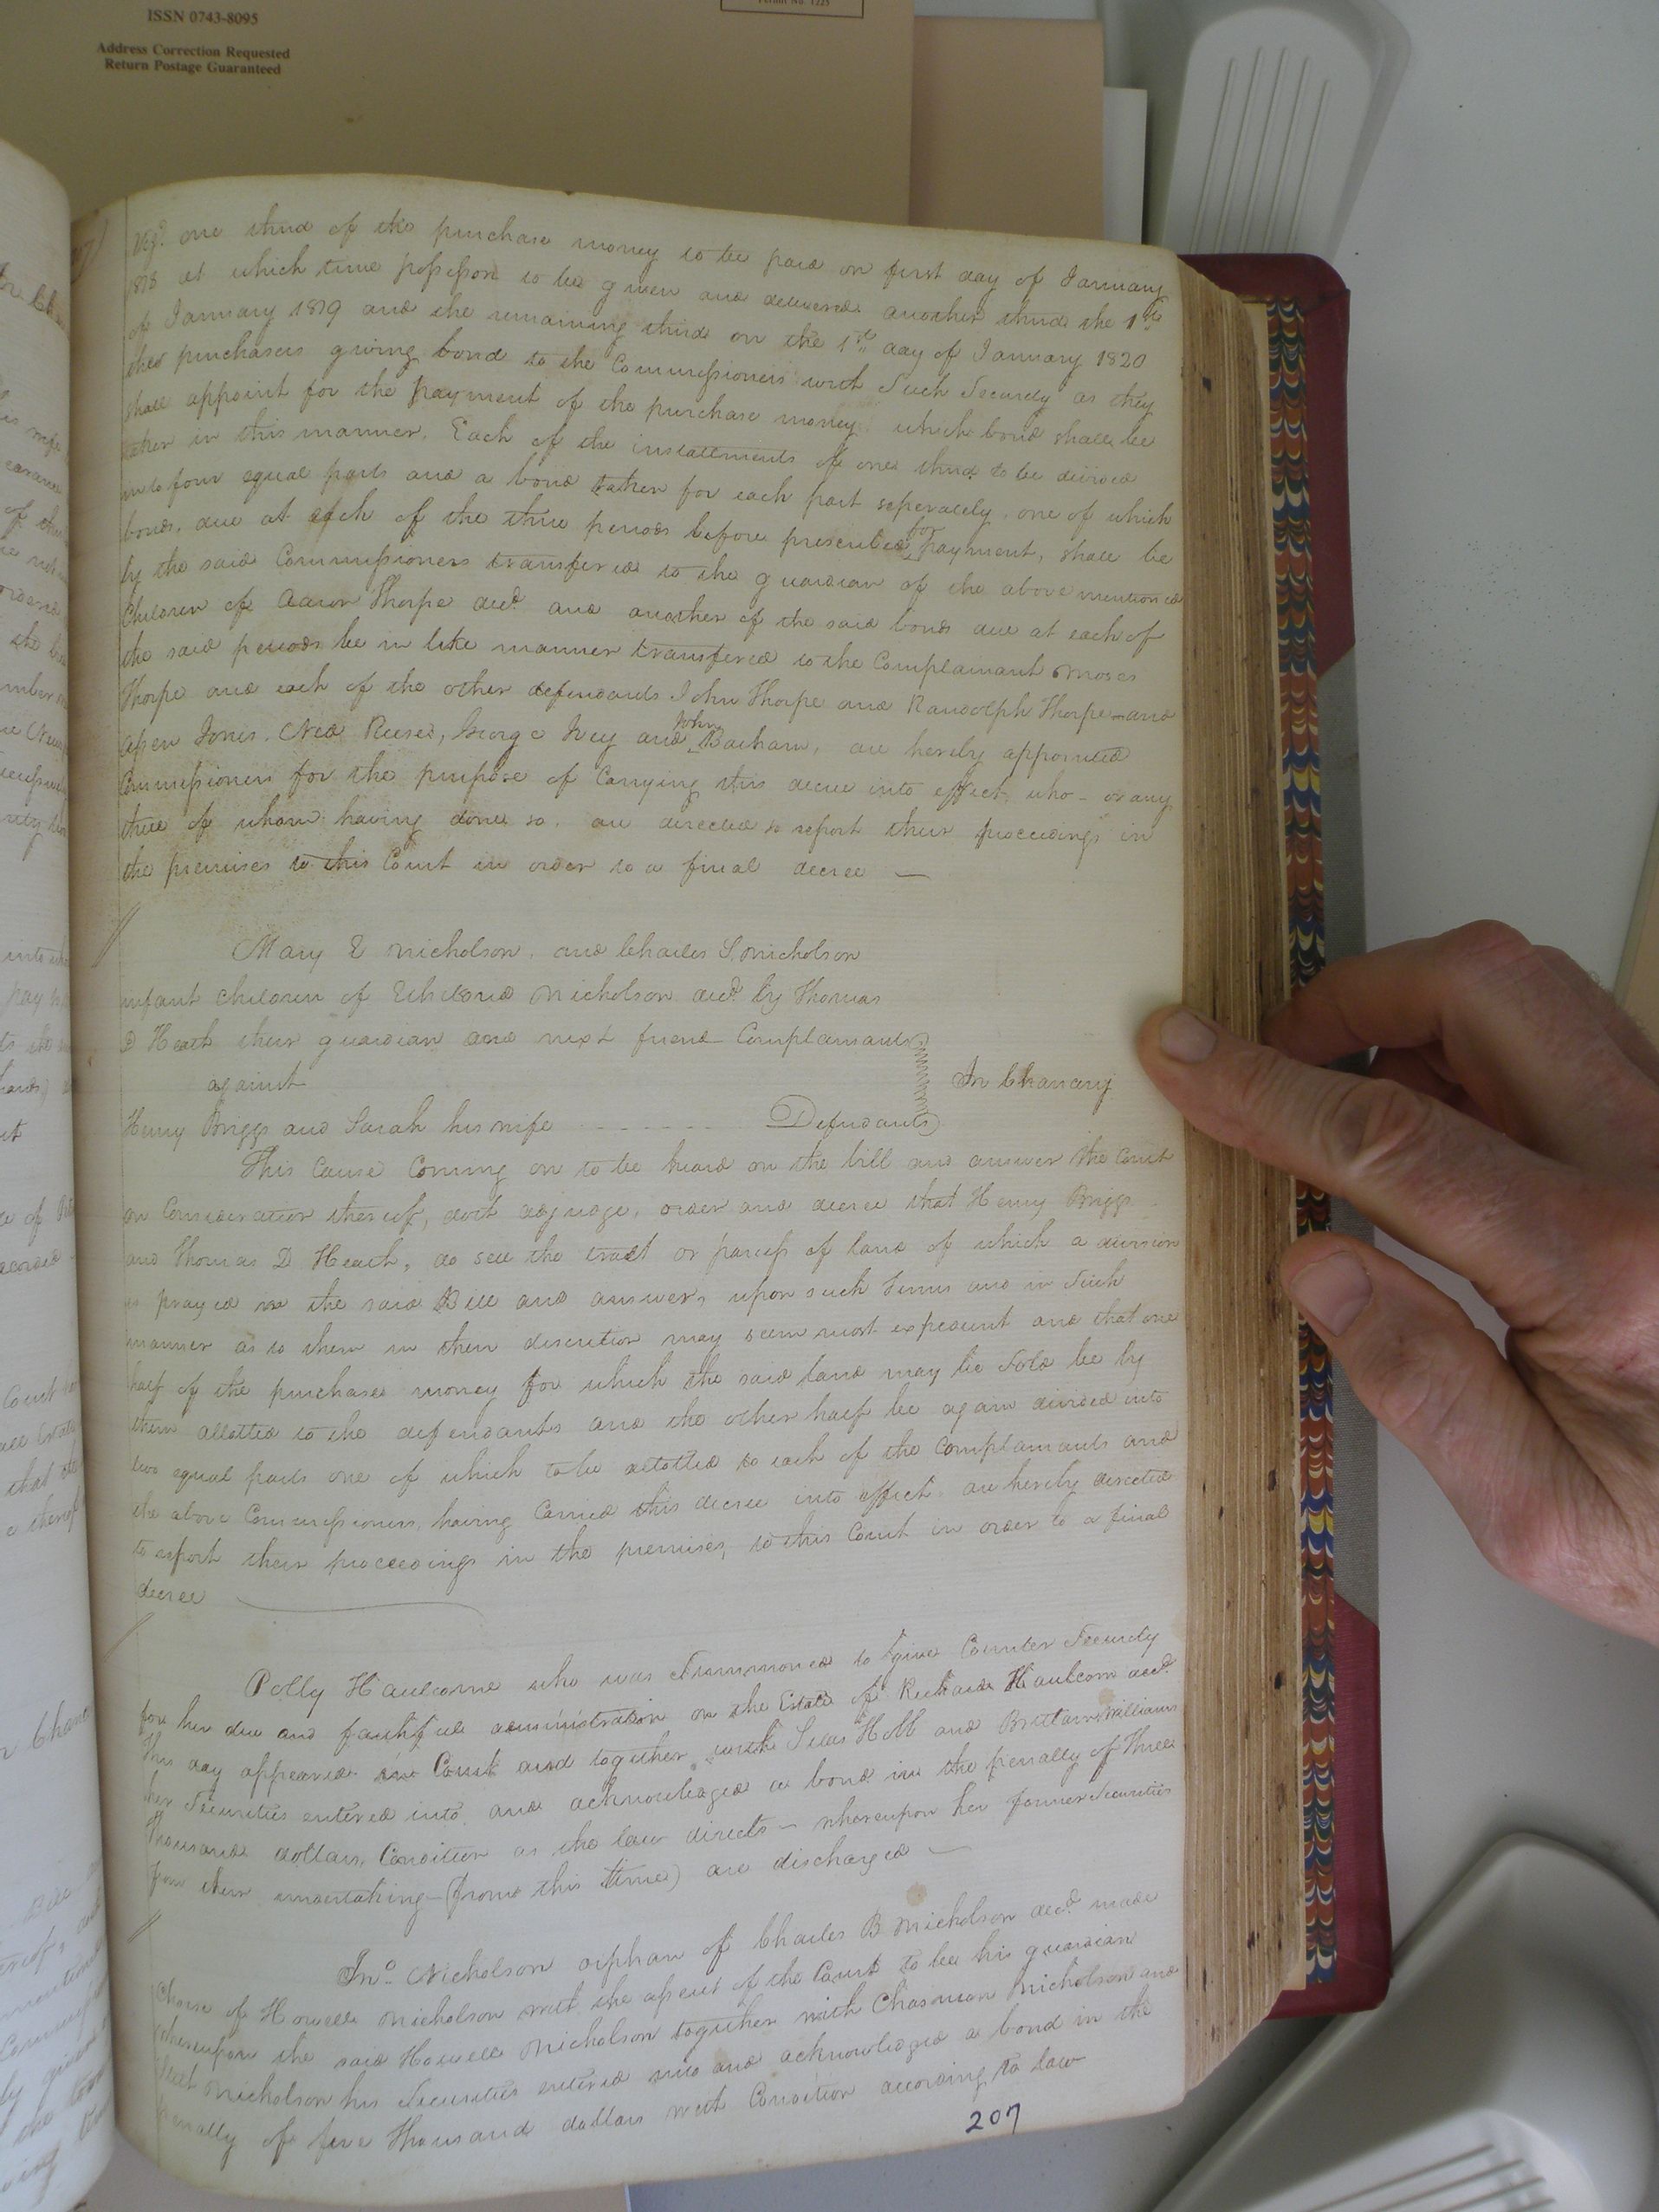 ISSN 0743-8095
Address Correction Requested
Return Postage Guaranteed
Permit No. 1225
Viz. one third of the purchase money to be paid on first day of January
1818 at which time possession to be given and delivered another third the 1st
of January 1819 and the remaining third on the 1st day of January 1820
the purchasers giving bond to the Commissioners with Such Security as they
shall appoint for the payment of the purchase money which bond shall be
taken in this manner. Each of the installments of one third to be divided
into four equal parts and a bond taken for each part seperately, one of which
bonds, due at each of the three periods before prescribed for payment, shall be
by the said Commissioners transfered to the guardian of the above mentioned
Children of Aaron Thorpe decd. and another of the said bonds due at each of
the said periods be in like manner transfered to the Complainant Moses
Thorpe and each of the other defendants John Thorpe and Randolph Thorpe - and
Jones, Reese, George Ivey and John Barham, are hereby appointed
Commissioners for the purpose of Carrying this decree into effect, who - or any
three of whom having done so, are directed to report their proceedings in
the premises to this Court in order to a final decree —
Mary E Nicholson, and Charles S, Nicholson
infant children of Nicholson decd. by Thomas
D Heath their guardian and next friend - Complainants
against
In Chancery
Henry Briggs and Sarah his wife - - - - - - - Defendants
This Cause Coming on to be heard on the bill and answer the Court
on Consideration thereof, doth adjudge, order and decree that Henry Briggs
and Thomas D Heath, do sell the tract or parcel of land of which a division
is prayed in the said Bill and answer, upon such terms and in Such
manner as to them in their discretion may seem most expedient and that one
half of the purchase money for which the said land may be Sold be by
them allotted to the defendants and the other half be again divided into
two equal parts one of which to be allotted to each of the Complainants and
the above Commissioners, having Carried this decree into effect are hereby directed
to report their proceedings in the premises, to this Court in order to a final
decree
Polly Haulcome who was Summoned to give Counter Security
for her due and faithful administration on the Estate of Richard Haulcom decd.
this day appeared in Court and together with Silas Holt and Brittain Williams
her Securities entered into and acknowledged a bond in the penalty of Three
Thousand dollars, Condition as the law directs - whereupon her former Securities
from their undertaking - (from this time) are discharged —
Jno. Nicholson orphan of Charles B Nicholson decd. made
Choice of Howell Nicholson with the assent of the Court to be his guardian
whereupon the said Howell Nicholson together with Nicholson and
Nicholson his Securities entered into and acknowledged a bond in the
penalty of five Thousand dollars with Condition according to law
207